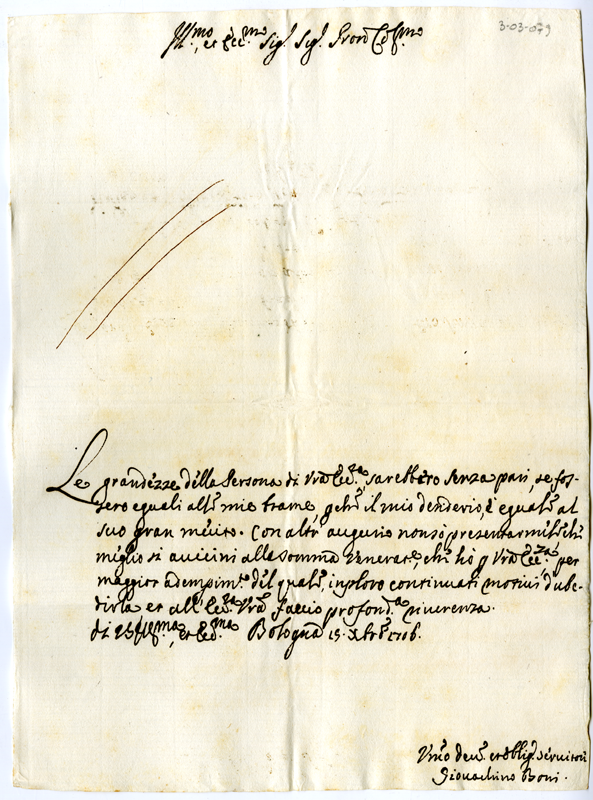 3-03-079
Ill.mo, et Ecc.mo Sig.r Sig.r Pron Col.mo
Le grandezze della Persona di Vra Ecc.za sarebbero senza pari, se fos-
sero eguali alle mie brame, perche il mio desiderio, è eguale al
suo gran merito. Con altro augurio non sò presentarmile che
meglio si avicini alla somma Venerat.e, che hò p Vra Ecc.za per
maggior adempim.to del quale, imploro continuati motivi d'ube-
dirla et all'Ecc.za Vra faccio profond.a riverenza.
di V. Ill.ma, et Ecc.ma Bologna 15. Xbre 1706.
Vmo dev. et obblig. servitore
Giovachino Boni.